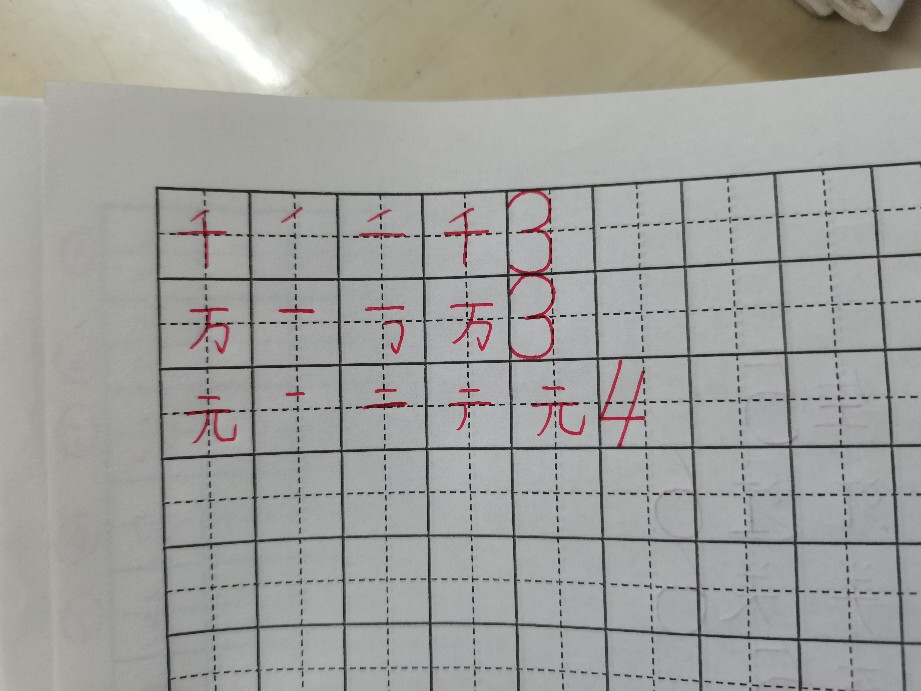 千 ㇒ 二 千 3
万 一 丆 万 3
元 一 二 亓 元 4